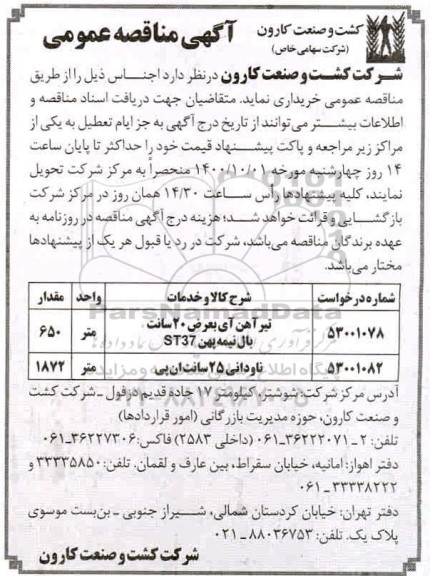 کشت و صنعت کارون
(شرکت سهامی خاص)
آگهی مناقصه عمومی
شرکت کشت و صنعت کارون درنظر دارد اجناس ذیل را از طریق
مناقصه عمومی خریداری نماید. متقاضیان جهت دریافت اسناد مناقصه و
اطلاعات بیشتر می‌توانند از تاریخ درج آگهی به جز ایام تعطیل به یکی از
مراکز زیر مراجعه و پاکت پیشنهاد قیمت خود را حداکثر تا پایان ساعت
۱۴ روز چهارشنبه مورخه ۱۴۰۰/۱۰/۰۱ منحصراً به مرکز شرکت تحویل
نمایند، کلیه پیشنهادها رأس ساعت ۱۴/۳۰ همان روز در مرکز شرکت
بازگشایی و قرائت خواهد شد؛ هزینه درج آگهی مناقصه در روزنامه به
عهده برندگان مناقصه می‌باشد، شرکت در رد یا قبول هر یک از پیشنهادها
مختار می‌باشد.
شماره درخواست شرح کالا و خدمات واحد مقدار
۵۳۰۰۱۰۷۸ تیرآهن آی بعرض ۲۰ سانت بال نیمه پهن ST37 متر ۶۵۰
۵۳۰۰۱۰۸۲ ناودانی ۲۵ سانت ان پی متر ۱۸۷۲
آدرس مرکز شرکت: شوشتر، کیلومتر ۱۷ جاده قدیم دزفول ـ شرکت کشت
و صنعت کارون، حوزه مدیریت بازرگانی (امور قراردادها)
تلفن: ۲ ـ ۳۶۲۲۲۰۷۱ـ۰۶۱ (داخلی ۲۵۸۳) فاکس: ۳۶۲۲۷۳۰۶ـ۰۶۱
دفتر اهواز: امانیه، خیابان سقراط، بین عارف و لقمان. تلفن: ۳۳۳۳۵۸۵۰ و
۳۳۳۳۸۲۲۲ ـ ۰۶۱
دفتر تهران: خیابان کردستان شمالی، شیراز جنوبی ـ بن‌بست موسوی
پلاک یک. تلفن: ۸۸۰۳۶۷۵۳ ـ ۰۲۱
شرکت کشت و صنعت کارون
ParsNamadData